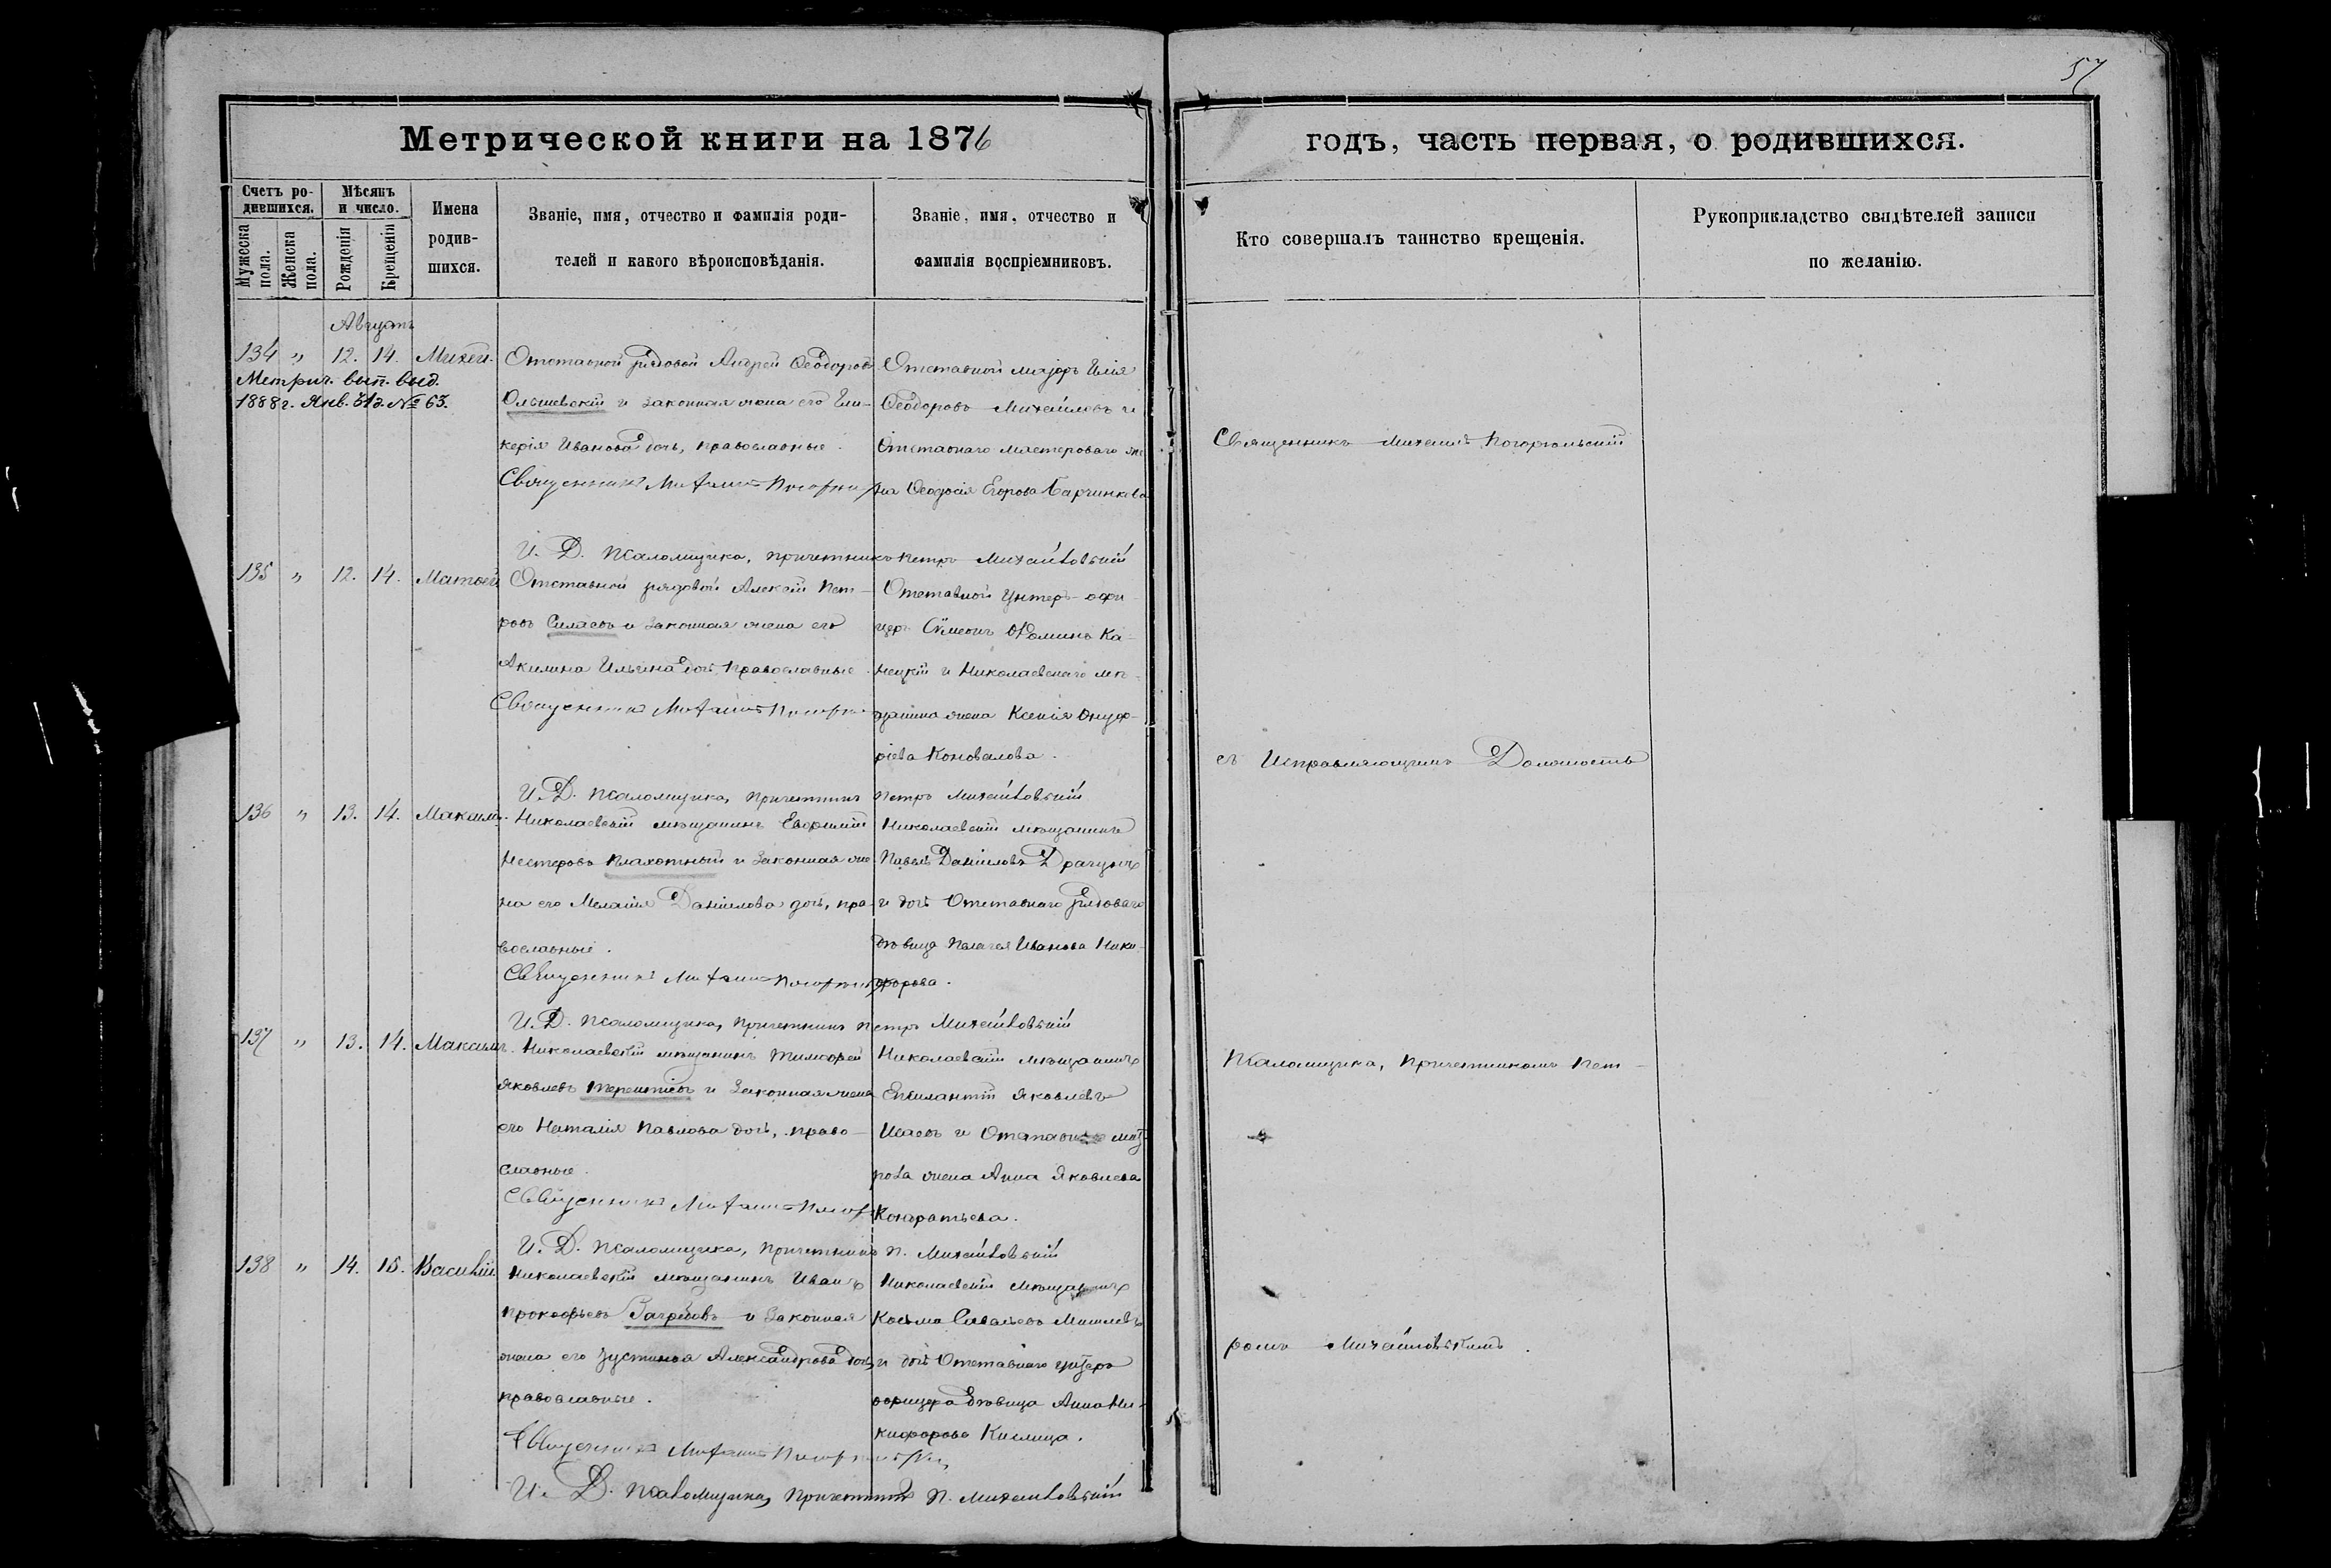 57
Метрической книги на 1876
годъ, часть первая, о родившихся.
Счетъ родившихся.
Мѣсяцъ и число.
Мужеска пола.
Женска пола.
Рожденія
Крещенія
Имена родившихся.
Званіе, имя, отчество и фамилія роди-
телей и какого вѣроисповѣданія.
Званіе, имя, отчество и
фамилія воспріемниковъ.
Кто совершалъ таинство крещенія.
Рукоприкладство свидѣтелей записи
по желанію.
Августъ
134 " 12. 14. Михей.
Метрич. вып. выд.
1888 г. Янв. 31 № 63.
Отставной рядовой Андрей Ѳеодоровъ
Ольшевскій и законная жена его Гли-
керія Иванова дочь, православные.
Священникъ Михаилъ
Отставной маіоръ Илія
Ѳеодоровъ Михайловъ и
Отставнаго мастероваго же
на Ѳеодосія Егорова
И. Д. Псаломщика, причетникъ Петръ Михайловскій
135 " 12. 14. Матѳей
Отставной рядовой Алексій Пет-
ровъ Силаевъ и законная жена его
Акилина Ильина дочь, православные.
Священникъ Михаилъ
Отставной унтеръ-офи
церъ Сѵмеонъ Ѳоминъ Ка-
нецкій и Николаевскаго мѣ-
щанина жена Ксенія Онуф-
ріева Коновалова.
И. Д. Псаломщика, причетникъ Петръ Михайловскій
136 " 13. 14. Максимъ.
Николаевскій мѣщанинъ Евфимій
Нестеровъ Плахотный и законная же-
на его Меланія Даніилова дочь, пра-
вославные.
Священникъ Михаилъ
Николаевскій мѣщанинъ
Павелъ Даніиловъ Драгунъ
и дочь Отставнаго рядоваго
дѣвица Пелагея Иванова Ники-
форова.
И. Д. Псаломщика, причетникъ Петръ Михайловскій
137 " 13. 14. Максимъ.
Николаевскій мѣщанинъ Тимофей
Яковлевъ Терентьевъ и законная жена
его Наталія Павлова дочь, право-
славные.
Священникъ Михаилъ
Николаевскій мѣщанинъ
Яковлевъ
Исаевъ и
жена Анна Яковлева
Кондратьева.
И. Д. Псаломщика, причетникъ П. Михайловскій
138 " 14. 15. Василій
Николаевскій мѣщанинъ Иванъ
Прокофьевъ и законная
жена его Іустина Александрова дочь,
православные.
Священникъ Михаилъ
Николаевскій мѣщанинъ
Косьма
и дочь Отставнаго унтеръ
офицера дѣвица Анна Ни-
кифорова Кислица.
И. Д. Псаломщика, причетникъ П. Михайловскій
Священникъ Михаилъ Погорѣльскій
съ Исправляющимъ Должность
Псаломщика, причетникомъ Пет-
ромъ Михайловскимъ.